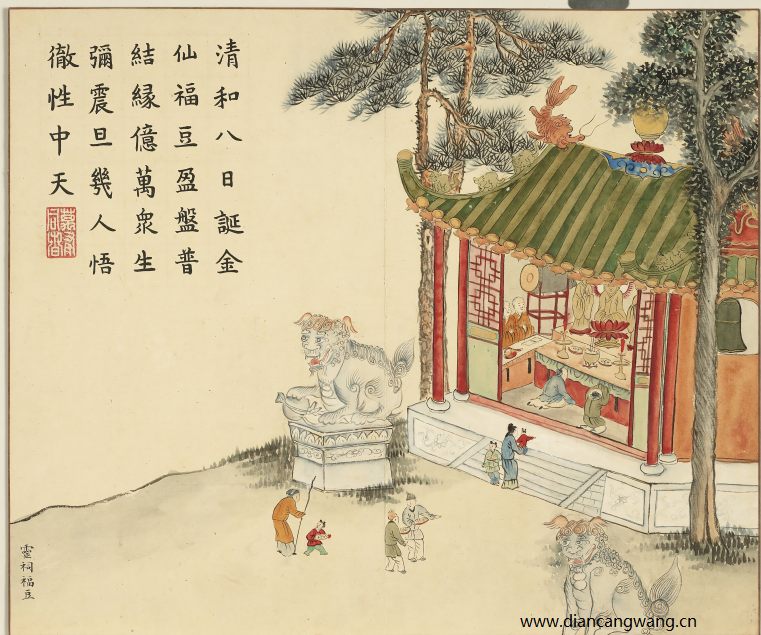 清和八日誕金
仙福豆盈盤普
結緣億萬衆生
彌震旦幾人悟
徹性中天
靈祠福豆
www.diancangwang.cn